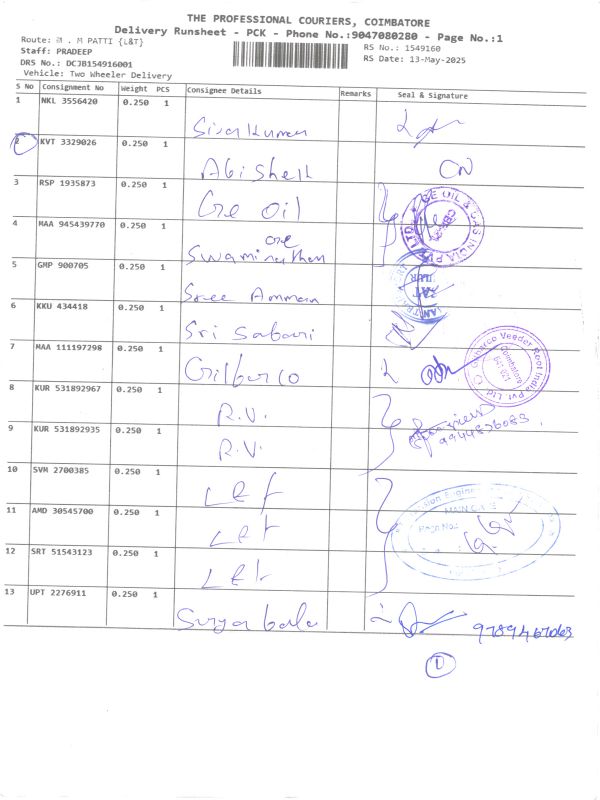 THE PROFESSIONAL COURIERS, COIMBATORE
Delivery Runsheet - PCK - Phone No.:9047080280 - Page No.:1
Route: . M PATTI {L&T}
RS No.: 1549160
Staff: PRADEEP
RS Date: 13-May-2025
DRS No.: DCJB154916001
Vehicle: Two Wheeler Delivery
S No Consignment No Weight PCS Consignee Details Remarks Seal & Signature
1 NKL 3556420 0.250 1 Sivakumar
2 KVT 3329026 0.250 1 Abishek CN
3 RSP 1935873 0.250 1 Gre Oil
4 MAA 945439770 0.250 1 Swaminathan
5 GMP 900705 0.250 1 Sree Amman
6 KKU 434418 0.250 1 Sri Sabari
7 MAA 111197298 0.250 1 Gilbarco
Gilbarco Veeder Root India Pvt Ltd
Coimbatore
641 021
8 KUR 531892967 0.250 1 R.V.
9 KUR 531892935 0.250 1 R.V.
10 SVM 2700385 0.250 1 L&T
11 AMD 30545700 0.250 1 L&T
MAIN GATE
12 SRT 51543123 0.250 1 L&T
13 UPT 2276911 0.250 1 Suryabala
1